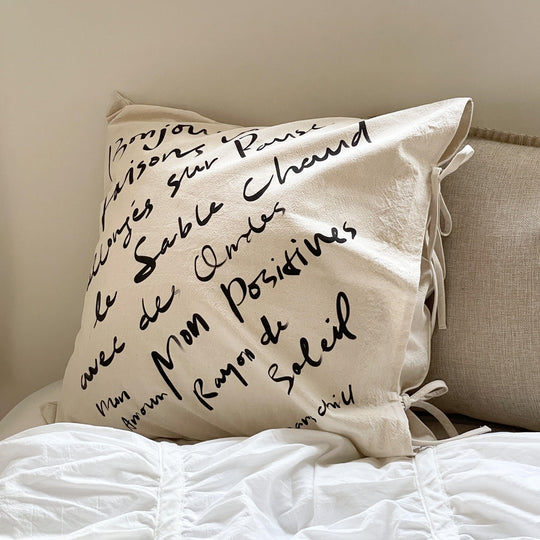 Bonjour
faisons une Pause
allongés sur
le Sable Chaud
avec des Ondes
Positives
Mon Amour Mon
Rayon de
Soleil